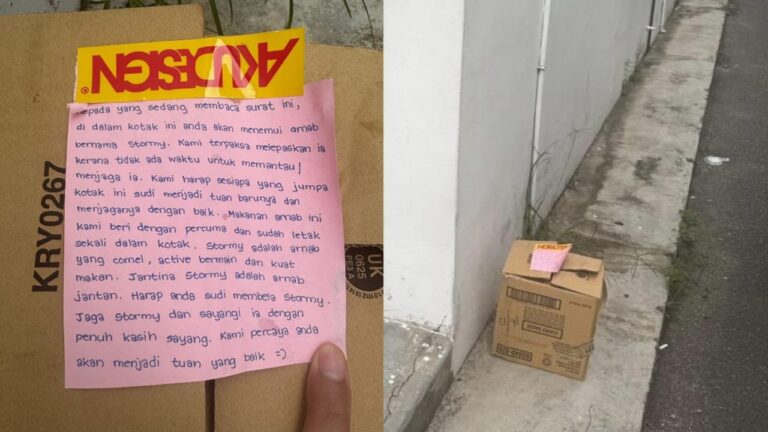 AKUDESIGN®
kepada yang sedang membaca surat ini,
di dalam kotak ini anda akan menemui arnab
bernama Stormy. Kami terpaksa melepaskan ia
kerana tidak ada waktu untuk memantau/
menjaga ia. Kami harap sesiapa yang jumpa
kotak ini sudi menjadi tuan barunya dan
menjaganya dengan baik. Makanan arnab ini
kami beri dengan percuma dan sudah letak
sekali dalam kotak. Stormy adalah arnab
yang comel, active bermain dan kuat
makan. Jantina Stormy adalah arnab
jantan. Harap anda sudi membela Stormy.
Jaga Stormy dan sayangi ia dengan
penuh kasih sayang. Kami percaya anda
akan menjadi tuan yang baik =)
KRY0267
UK
0625